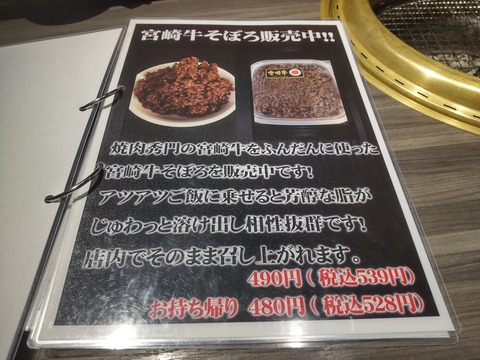 宮崎牛そぼろ販売中!!
宮崎牛
焼肉秀門の宮崎牛をふんだんに使った
宮崎牛そぼろを販売中です!
アツアツご飯に乗せると芳醇な脂が
じゅわっと溶け出し相性抜群です!
店内でそのまま召し上がれます。
490円(税込539円)
お持ち帰り 480円(税込528円)